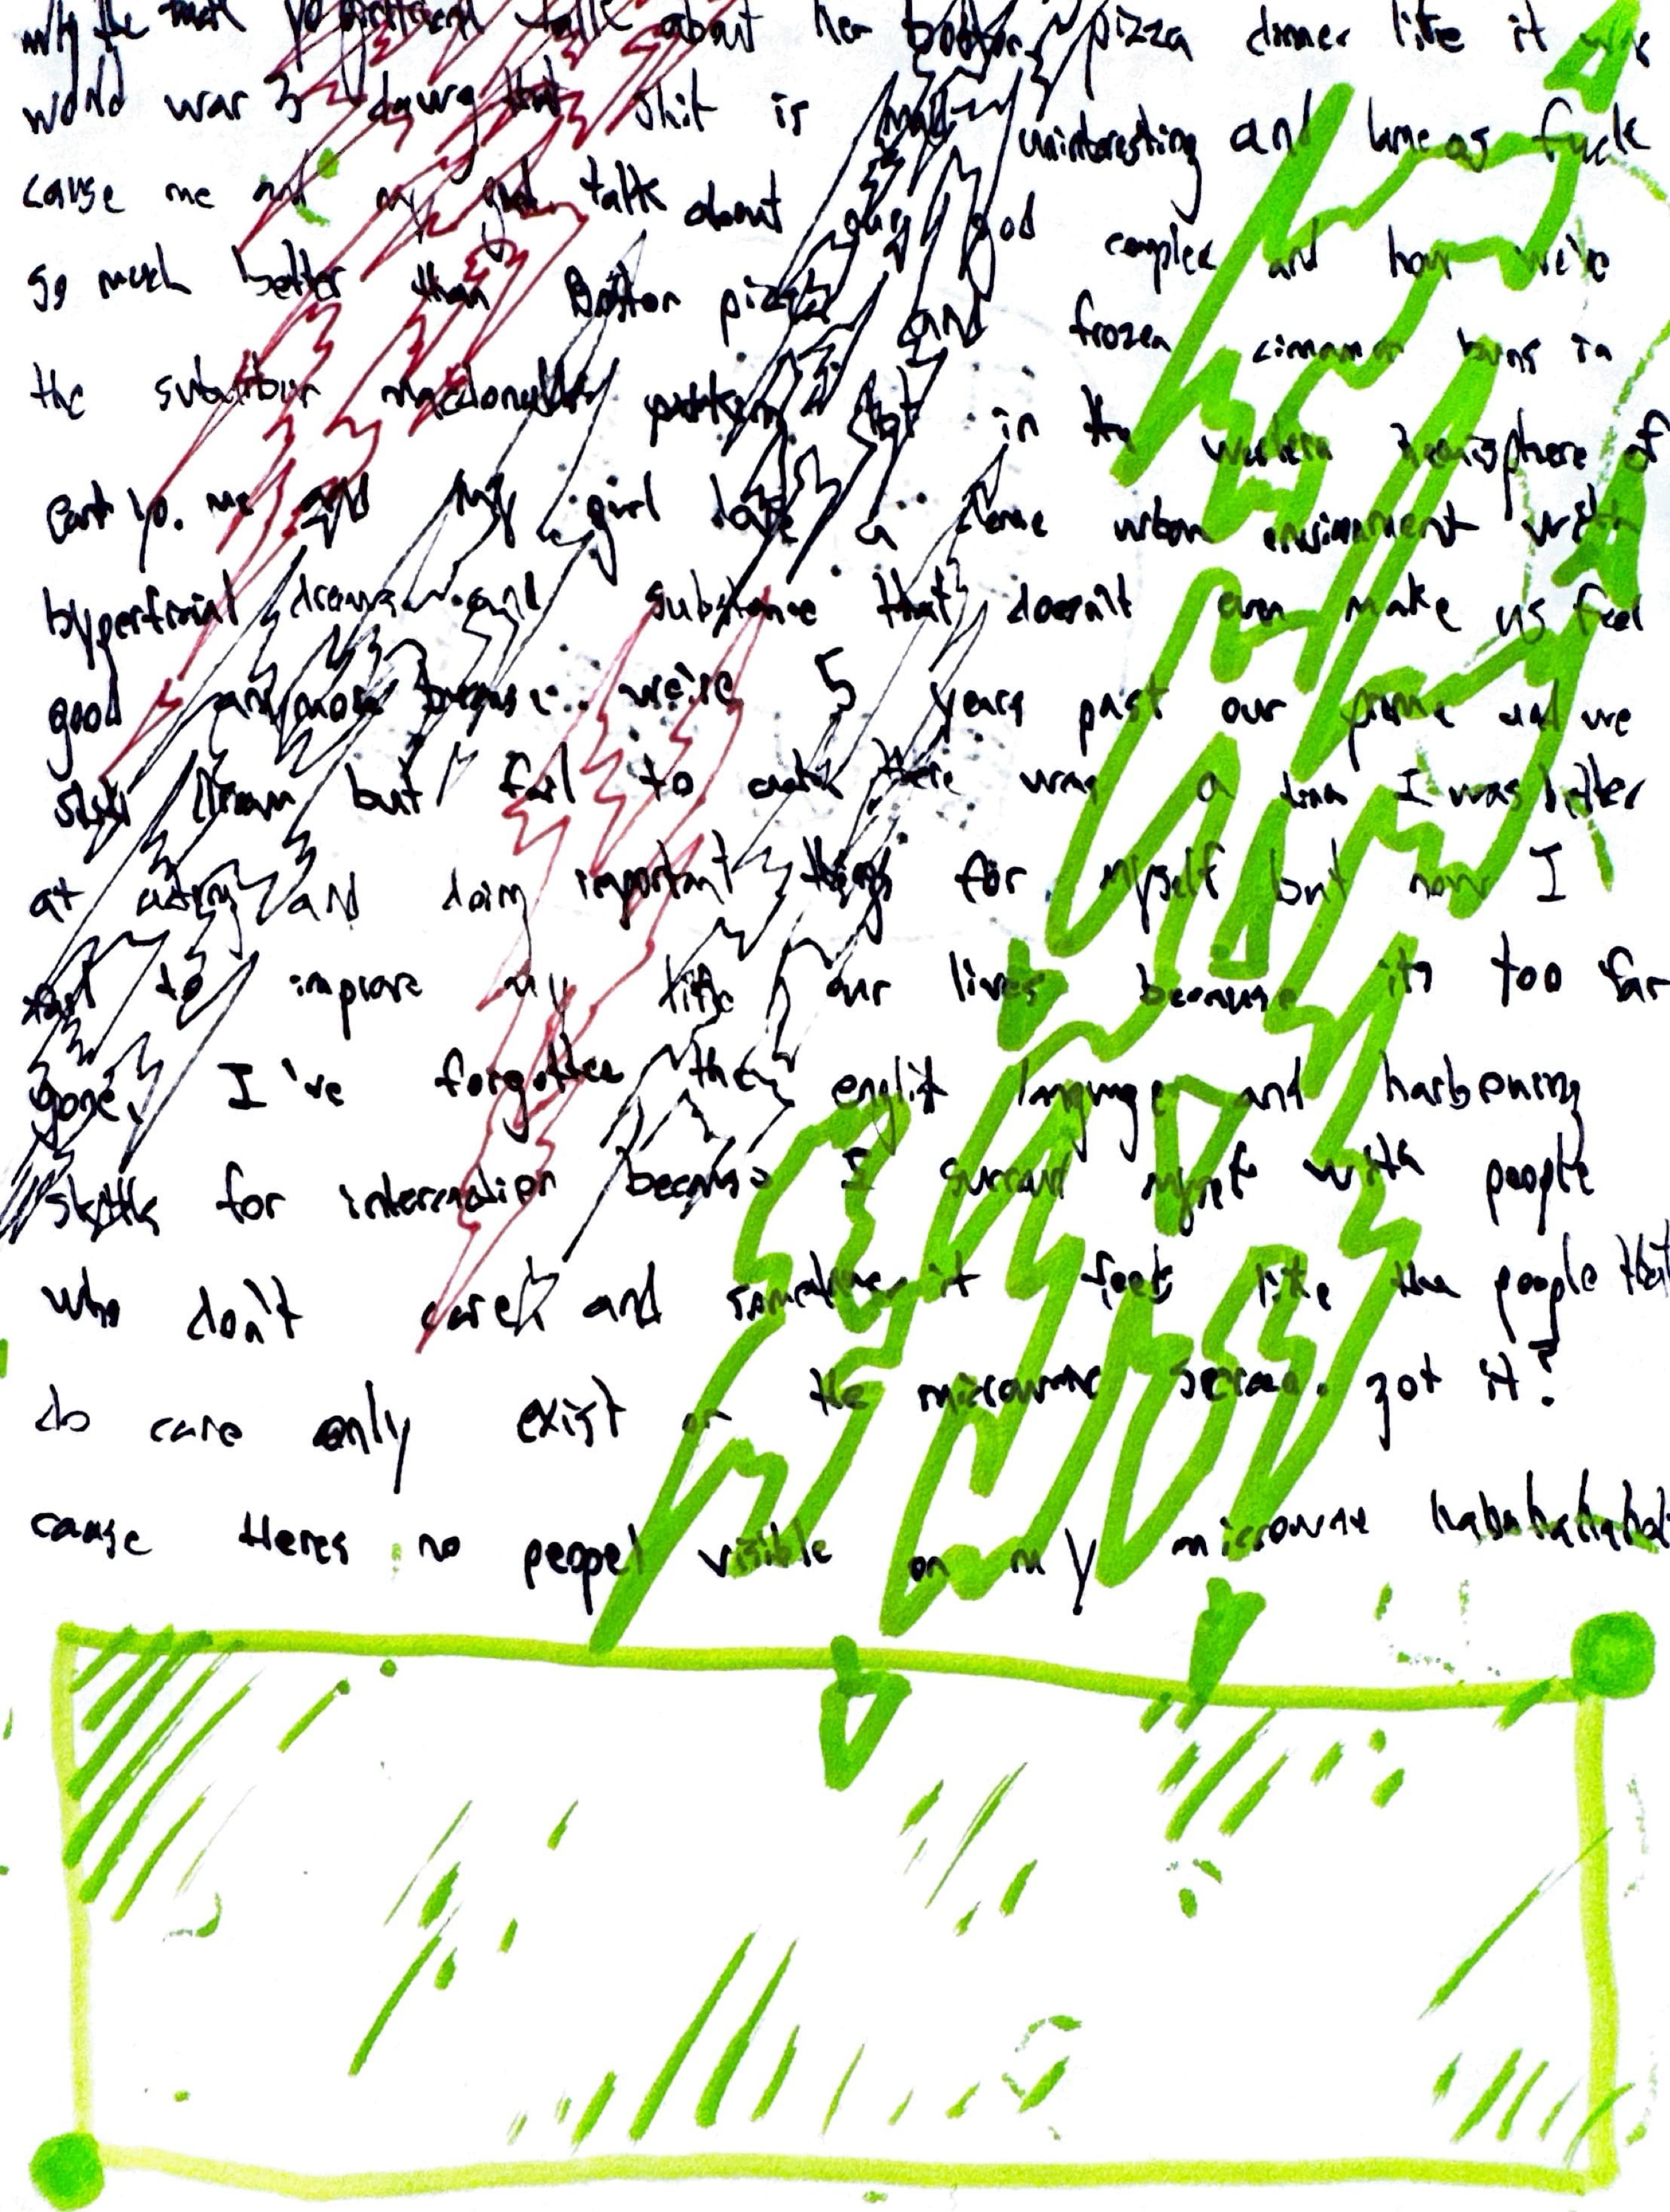 why the fuck yo girlfriend talk about her boston pizza dinner like it was
world war 3 dawg that shit is mad uninteresting and lame as fuck
cause me and my girl talk about our god complex and how we're
so much better than Boston pizza and frozen cinnamon buns in
the suburban macdonalds that in the western hemisphere of
earth yo. me and my girl love a some urban environment with
dreams and substance that doesn't even make us feel
good anymore because we're 5 years past our prime and we
still dream but fail to there was a time I was better
at acting and doing important things for myself but now I
fail to improve my life our lives because its too far
gone. I've forgotten the langnuage and
for because I myself with people
who don't care and it feels like the people that
do care only exist on the microwave screen. got it?
cause theres no peopel visible on my microwave hahahahahah